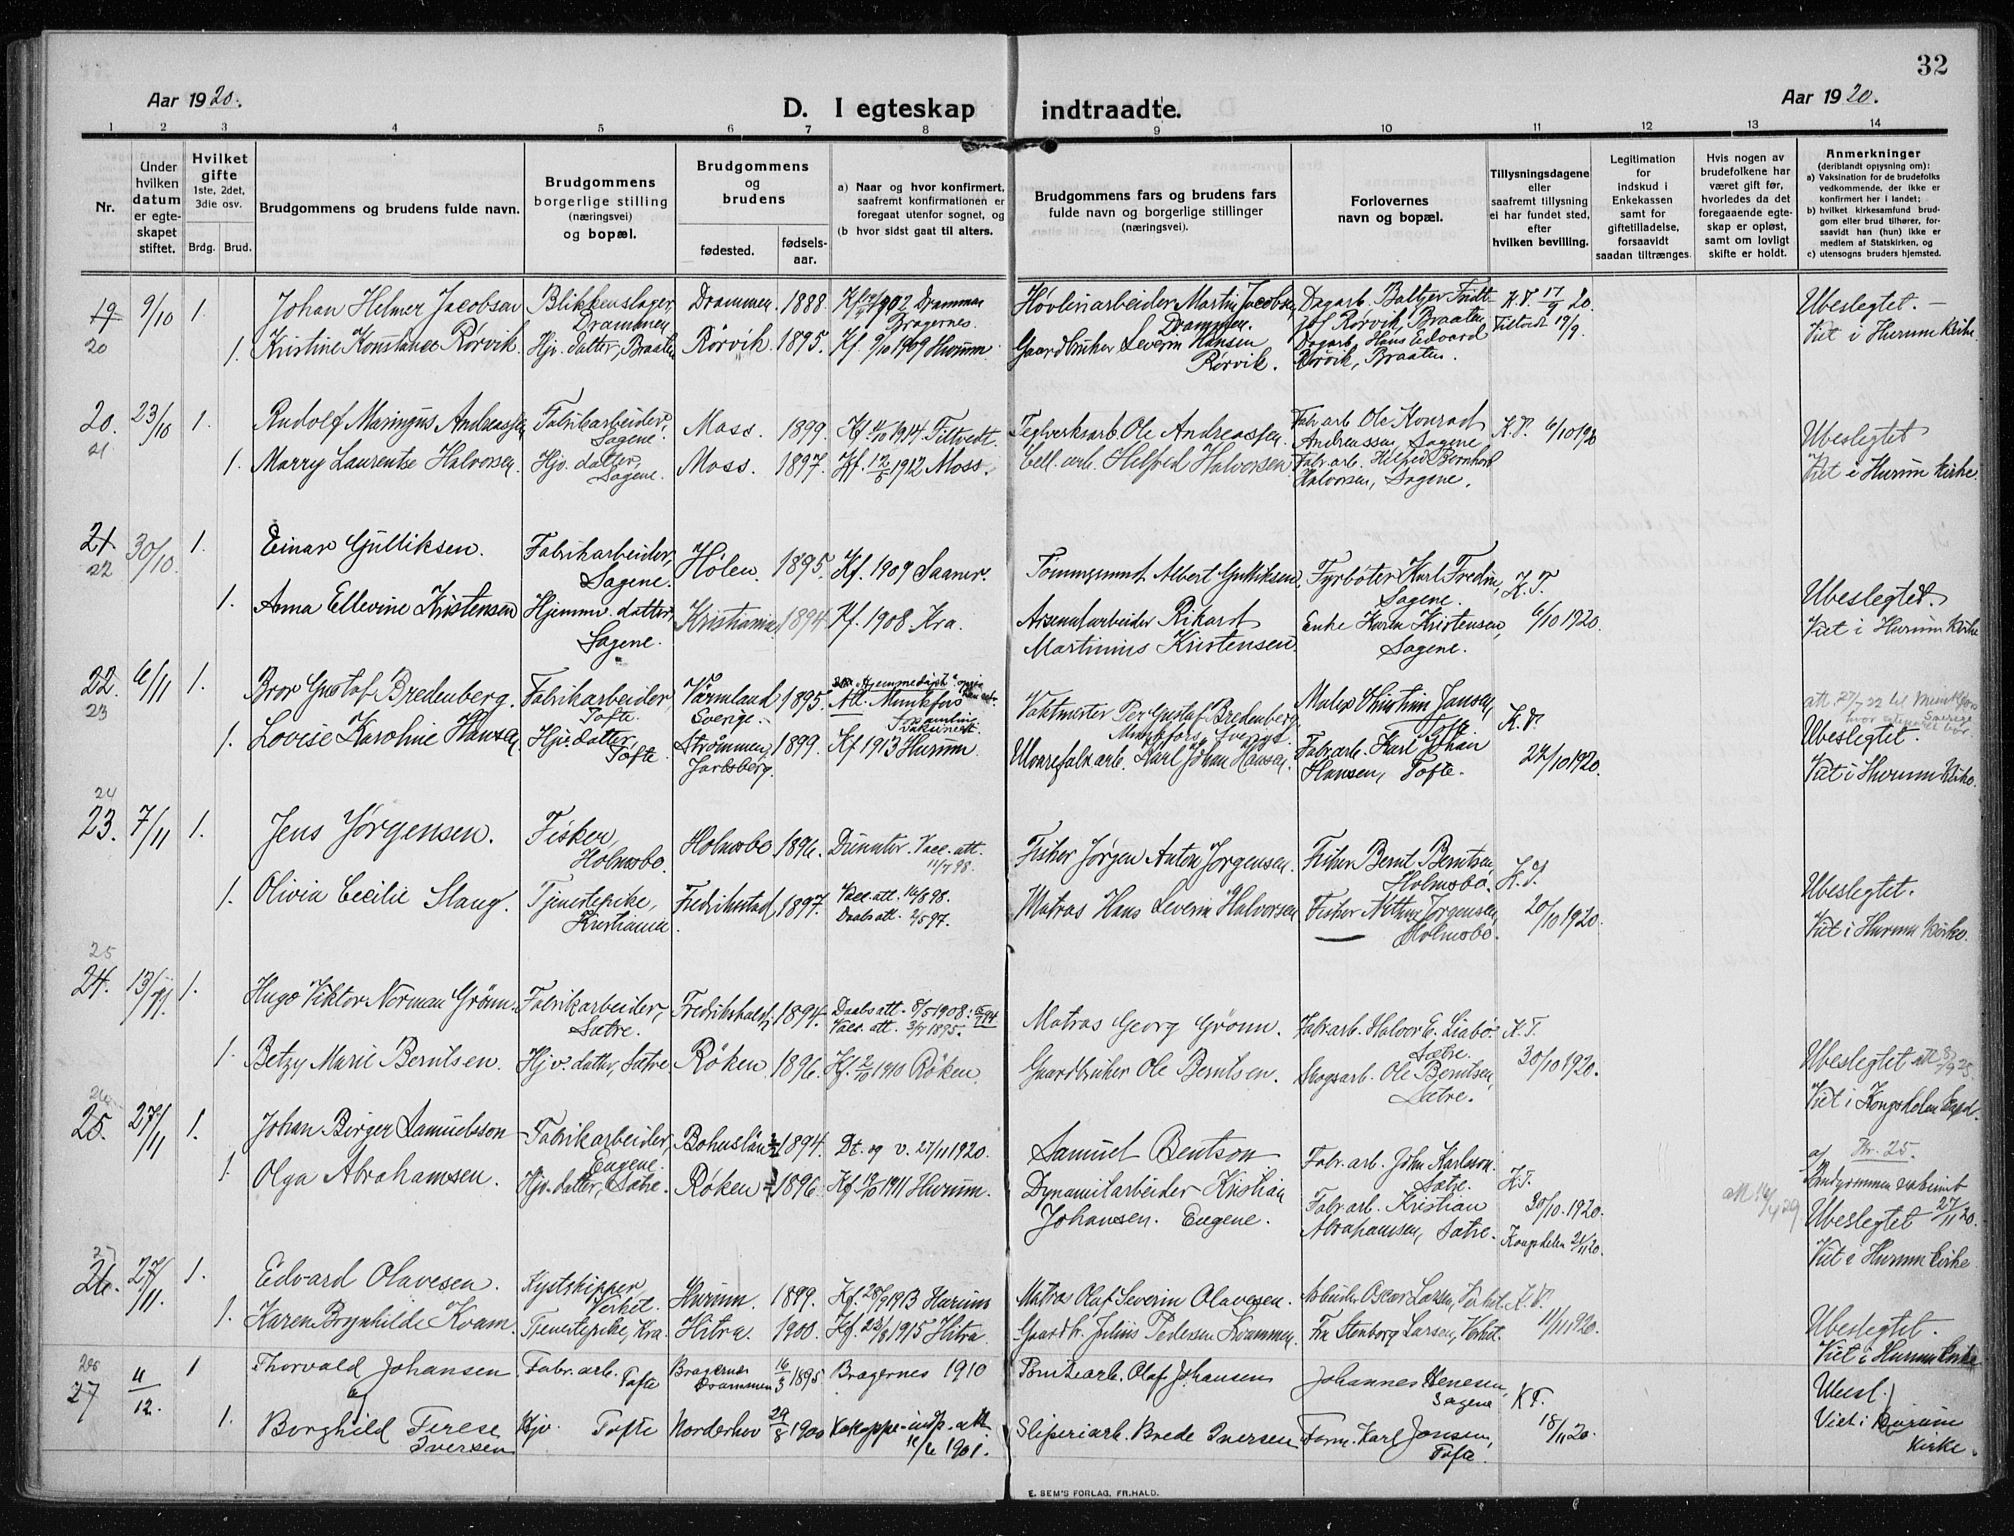 32
Aar 1920.
D. I egteskap indtraadte.
Aar 1920.
1 2 3 4 5 6 7 8 9 10 11 12 13 14
Nr.
Under hvilken datum er egteskapet stiftet.
Hvilket gifte 1ste, 2det, 3die osv.
Brdg. Brud.
Brudgommens og brudens fulde navn.
Brudgommens borgerlige stilling (næringsvei) og bopæl.
Brudgommens og brudens
fødested. fødsels-aar.
a) Naar og hvor konfirmert, saafremt konfirmationen er foregaat utenfor sognet, og
(b hvor sidst gaat til alters.
Brudgommens fars og brudens fars fulde navn og borgerlige stillinger (næringsvei).
Forlovernes navn og bopæl.
Tillysningsdagene eller saafremt tillysning ei har fundet sted, efter hvilken bevilling.
Legitimation for indskud i Enkekassen samt for giftetilladelse, forsaavidt saadan tiltrænges.
Hvis nogen av brudefolkene har været gift før, hvorledes da det foregaaende egteskap er opløst, samt om lovlig skifte er holdt.
Anmerkninger
(deriblandt oplysning om):
a) Vaksination for de brudefolks vedkommende, der ikke er konfirmert her i landet;
b) hvilket kirkesamfund brudgom eller brud tilhører, forsaavidt han (hun) ikke er medlem av Statskirken, og
c) utensogns bruders hjemsted.
19 9/10 1. Johan Helmer Jacobsen Blikkenslager, Drammen Drammen. 1888 Drammen Bragernes. Høvleriarbeider Martin Jacobsen, Drammen. K.T. 17/9 20. Ubeslegtet. –
20 1. Kristine Konstance Rørvik. Hjv. datter, Braaten Rørvik. 1895. Kf. 9/10 1909 Hurum. Gaardbruker Severin Hansen Rørvik. Dagarb. Hans Edvard Rørvik, Braaten. Filtvedt 19/9. Viet i Hurum kirke.
20. 23/10 1. Rudolf Maringus Andreassen Fabrikarbeider, Sagene. Moss. 1899. 1914 Filtvedt. Teglverksarb. Ole Andreassen. Fabr.arb. Ole Konrad Andreassen, Sagene. K.T. 6/10 1920 Ubeslegtet
21 1. Marry Laurentse Halvorsen. Hjv. datter, Sagene. Moss. 1897. 1912 Moss. Cell. arb. Helfred Halvorsen Fabr.arb. Helfred Bernhard Halvorsen, Sagene. Viet i Hurum kirke.
21 30/10. 1. Einar Gulliksen. Fabrikarbeider, Sagene. Hølen. 1895. Kf. 1909 Saaner. Tømmermand Albert Gulliksen, Fyrbøter Karl Fredin, Sagene. K.T. Ubeslegtet.
22 1. Anna Ellevine Kristensen Hjemmev. datter, Sagene. Kristiania 1894 Kf. 1908 Kra. Arsenalarbeider Rikard Martinius Kristensen Enke Karen Kristensen, Sagene. 6/10 1920. Viet i Hurum kirke
22. 6/11 1. Bror Gustaf Bredenberg. Fabrikarbeider, Tofte. Värmland Sverige. 1895. Att. Munkfors Vaktmester Per Gustaf Bredenberg Munkfors, Sverige. K.T. Ubeslegtet.
23 1. Lovise Karoline Hansen Hjv. datter, Tofte. Strømmen, Jarlsberg. 1899. Kf 1913 Hurum. Karl Johan Hansen. Fabr.arb. Karl Johan Hansen, Tofte. 24/10 1920. Viet i Hurum kirke
24
23. 7/11 1. Jens Jørgensen. Fisker, Holmsbo. Holmsbo 1896. Dissenter. Vacc. att. 11/7 98. Fisker Jørgen Anton Jørgensen. Fisker Bernt Berntsen, Holmsbo. K.T. Ubeslegtet.
1. Olivia Cecilie Slang. Tjenestepike, Kristiania Fredrikstad 1897. Vacc. att. 16/8 98. Daabsatt. 2/5 97. Matros Hans Severin Halvorsen Fisker Jørgensen, Holmsbo. 20/10 1920. Viet i Hurum kirke.
25
24. 13/11. 1. Hugo Viktor Norman Grønn. Fabrikarbeider, Sætre. Fredrikshald 1894. Daabsatt. 8/5 1908. Vacc. att. 3/7 1895. Matros Georg Grønn. Fabr.arb. Halvor E. Liabø. Sætre. K.T. Ubeslegtet
1. Betzy Marie Berntsen. Hjv. datter, Sætre. Røken 1896. Kf. 2/10 1910 Røken. Gaardbruker Ole Berntsen. Skogsarb. Ole Berntsen, Sætre. 30/10 1920. Viet i Kongshelen kapel.
26
25. 27/11 1. Johan Birger Samuelsson Fabrikarbeider, Eugene. Bohuslän 1894. Dt. og v. 27/11 1920. Samuel Bentson Fabr.arb. John Karlson. Sætre. K.T. Nr. 25. a/ Brudgommen vaksinert 27/11 20.
1. Olga Abrahamsen. Hjv. datter, Sætre. Røken 1896. 1911 Hurum. Dynamitarbeider Kristian Johansen. Eugene. Fabr.arb. Kristian Abrahamsen, Sætre. 30/10. 1920. Kongshelen 21/11 20. Ubeslegtet Viet i Hurum kirke
27
26. 27/11. 1. Edvard Olavesen. Kystskipper, Verket. Hurum. 1899. Kf. 28/9 1913 Hurum Matros Olaf Severin Olavesen. Arbeider Oscar Larsen, Verket. K.T. Ubeslegtet.
1. Karen Brynhilde Kvam. Tjenestepike, Kra. Hitra. 1900. 1915 Hitra Gaardbr. Julius Pedersen Kvammen. Fru Stenborg Larsen, Verket. 11/11 1920. Viet i Hurum kirke
28
27 4/12. 1 Thorvald Johansen Fabr. arb. Tofte Bragernes Drammen 16/3 1895 Bragernes 1910 Olaf Johansen Johannes Henesen, Sagene K.T. Ubesl.
og
1. Borghild Terese Iversen Hjv. Tofte Norderhov 29/8 1900 Kokoppe-indp. att. 11/6 1901. Sliperiarb. Brede Iversen Form. Karl Jonsen, Tofte. 18/11 20. Viet i Hurum kirke.
E. SEM'S FORLAG, FR.HALD.